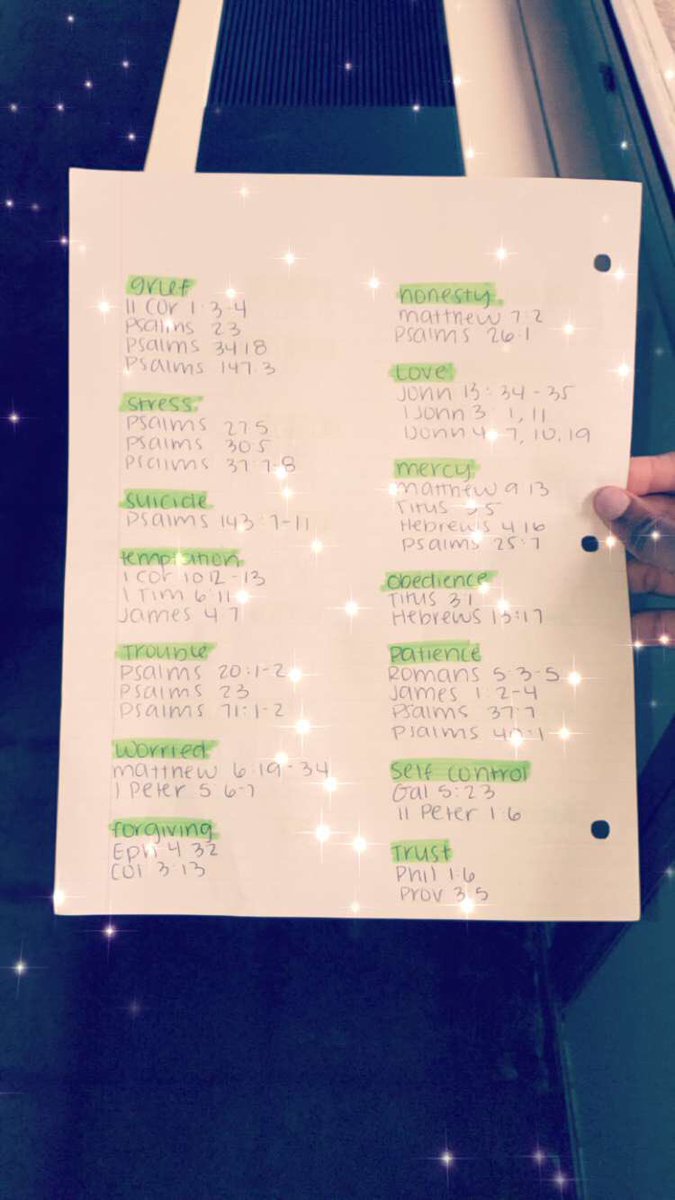 grief
11 Cor 1:3-4
Psalms 23
Psalms 34:18
Psalms 147:3
Stress
Psalms 27:5
Psalms 30:5
Psalms 37:7-8
Suicide
Psalms 143:7-11
temptation
1 Cor 10:12-13
1 Tim 6:11
James 4:7
Trouble
Psalms 20:1-2
Psalms 23
Psalms 71:1-2
Worried
Matthew 6:19-34
1 Peter 5:6-7
forgiving
Eph 4:32
Col 3:13
honesty
Matthew 7:2
Psalms 26:1
Love
John 13:34-35
1 John 3:1, 11
1 John 4:7, 10, 19
mercy
Matthew 9:13
Titus
Hebrews 4:16
Psalms 25:7
Obedience
Titus 3:1
Hebrews 13:17
Patience
Romans 5:3-5
James 1:2-4
Psalms 37:7
Psalms 40:1
Self control
Gal 5:23
11 Peter 1:6
Trust
Phil 1:6
Prov 3:5